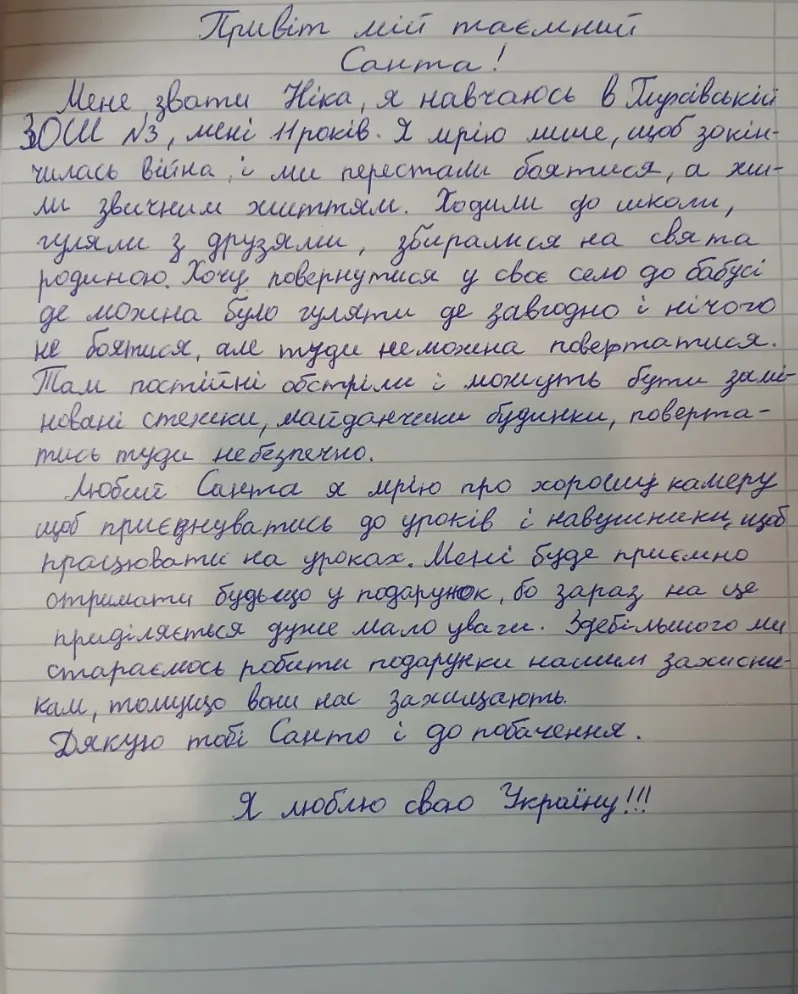 Привіт мій таємний
Санта!
Мене звати Ніка, я навчаюсь в
ЗОШ №3, мені 11 років. Я мрію лише, щоб закін-
чилась війна, і ми перестали боятися, а жи-
ли звичним життям. Ходили до школи,
гуляли з друзями, збиралися на свята
родиною. Хочу повернутися у своє село до бабусі
де можна було гуляти де завгодно і нічого
не боятися, але туди неможна повертатися.
Там постійні обстріли і можуть бути замі-
новані стежки, майданчики будинки, поверта-
тись туди небезпечно.
Любий Санта я мрію про хорошу камеру
щоб приєднуватись до уроків і навушники, щоб
працювати на уроках. Мені буде приємно
отримати будьщо у подарунок, бо зараз на це
приділяється дуже мало уваги. Здебільшого ми
стараємось робити подарунки нашим захисни-
кам, томущо вони нас захищають.
Дякую тобі Санто і до побачення.
Я люблю свою Україну!!!